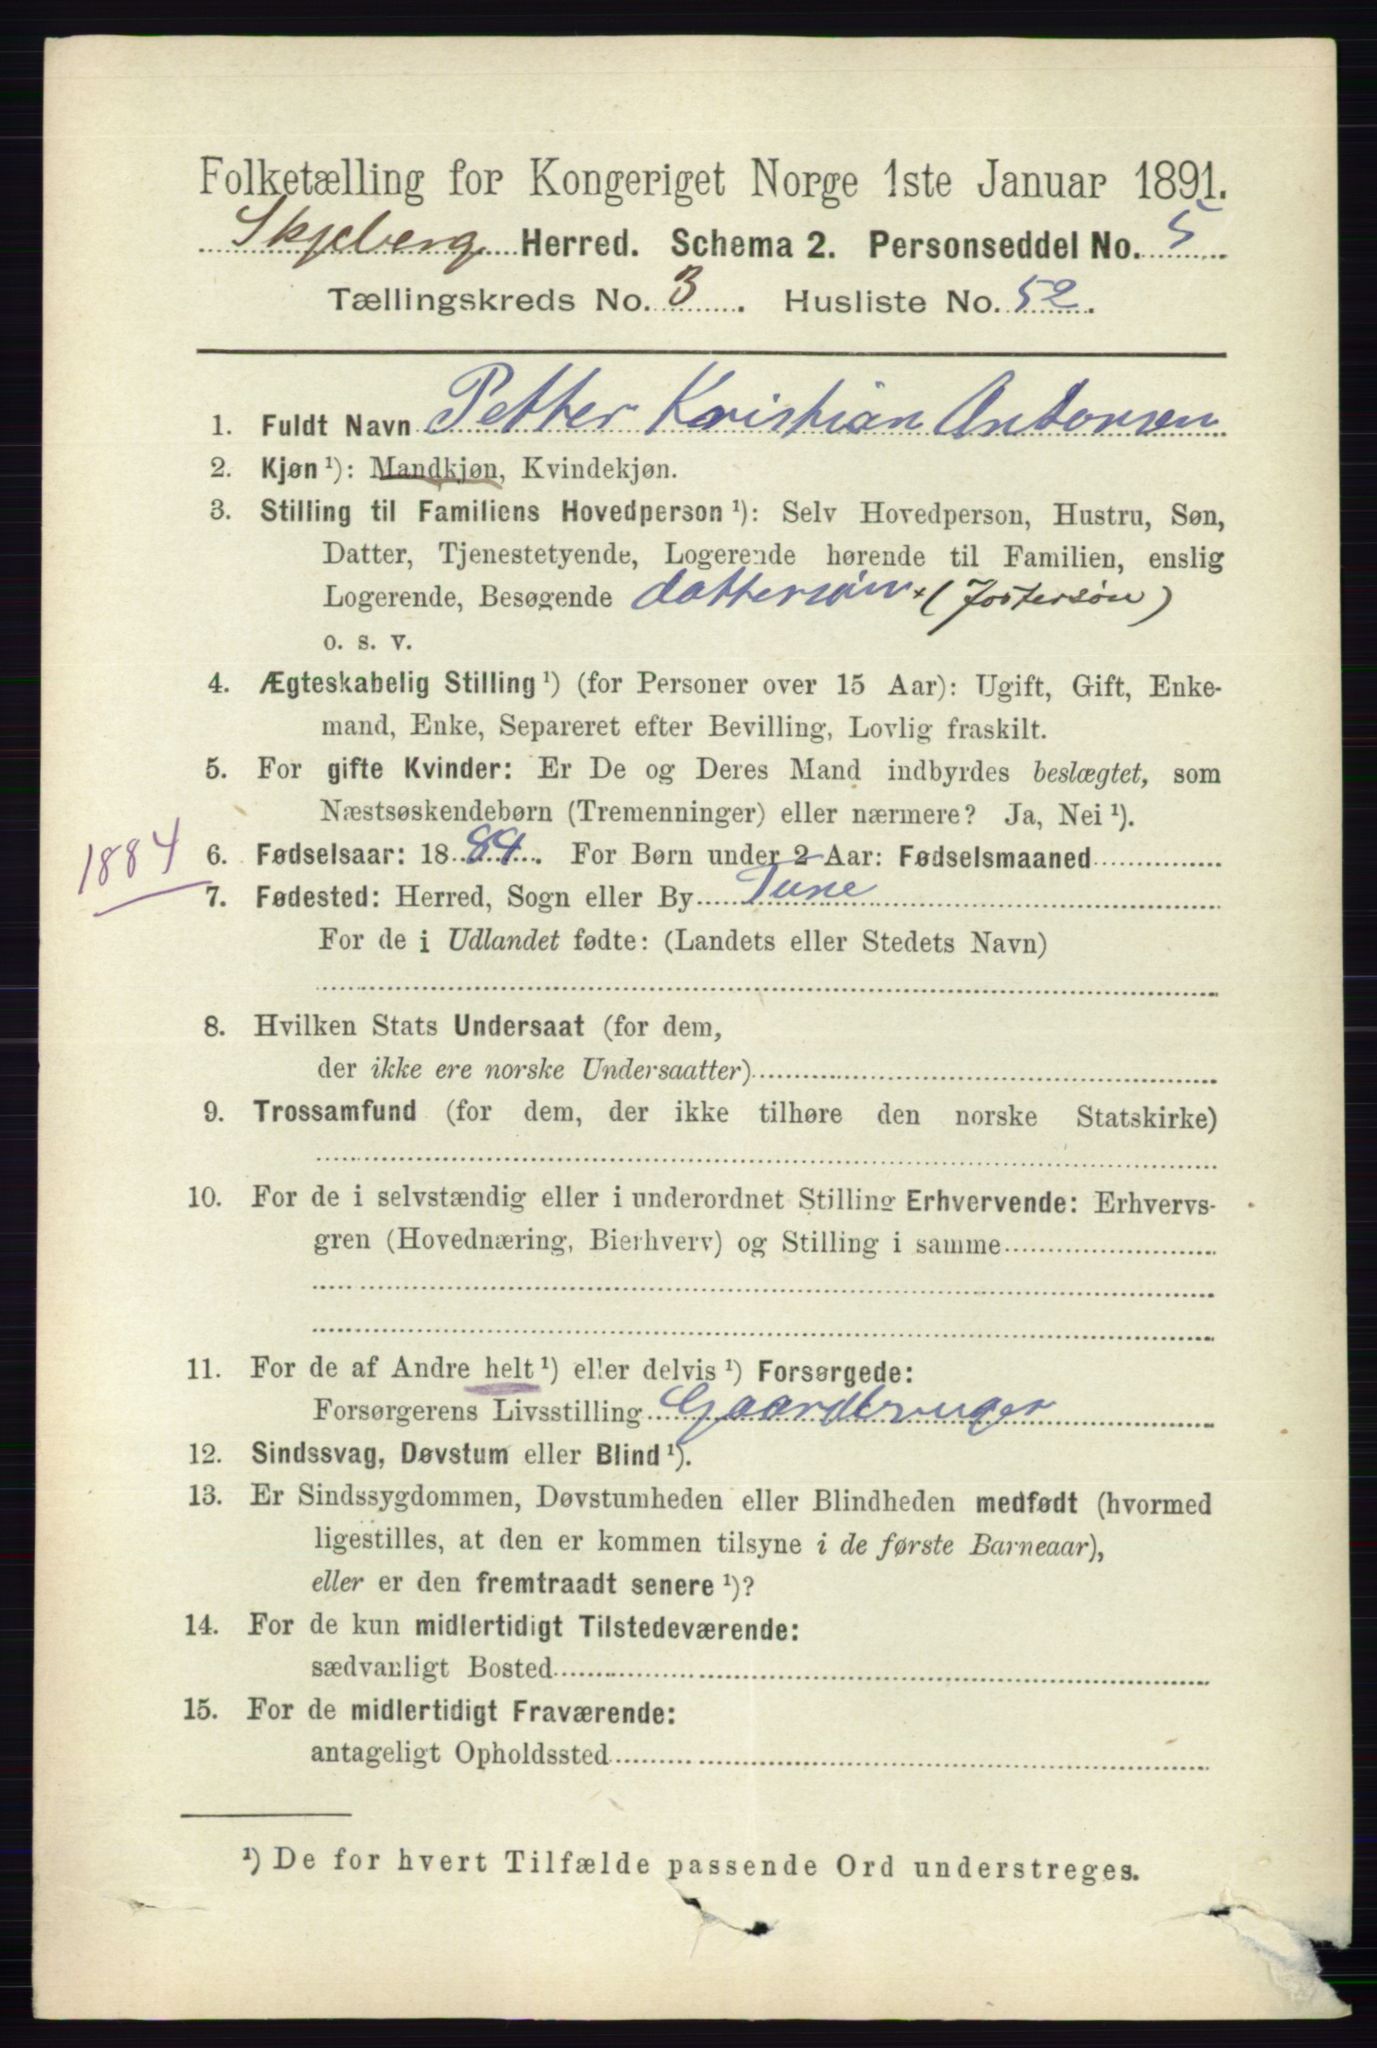 Folketælling for Kongeriget Norge 1ste Januar 1891.
Skjeberg Herred. Schema 2. Personseddel No. 5
Tællingskreds No. 3. Husliste No. 52.
1. Fuldt Navn Petter Kristian Antonsen
2. Kjøn ¹): Mandkjøn, Kvindekjøn.
3. Stilling til Familiens Hovedperson ¹): Selv Hovedperson, Hustru, Søn,
Datter, Tjenestetyende, Logerende hørende til Familien, enslig
Logerende, Besøgende dattersøn × (Fostersøn)
o. s. v.
4. Ægteskabelig Stilling ¹) (for Personer over 15 Aar): Ugift, Gift, Enke-
mand, Enke, Separeret efter Bevilling, Lovlig fraskilt.
5. For gifte Kvinder: Er De og Deres Mand indbyrdes beslægtet, som
Næstsøskendebørn (Tremenninger) eller nærmere? Ja, Nei ¹).
1884
6. Fødselsaar: 1884. For Børn under 2 Aar: Fødselsmaaned
7. Fødested: Herred, Sogn eller By Tune
For de i Udlandet fødte: (Landets eller Stedets Navn)
8. Hvilken Stats Undersaat (for dem,
der ikke ere norske Undersaatter)
9. Trossamfund (for dem, der ikke tilhøre den norske Statskirke)
10. For de i selvstændig eller i underordnet Stilling Erhvervende: Erhvervs-
gren (Hovednæring, Bierhverv) og Stilling i samme
11. For de af Andre helt ¹) eller delvis ¹) Forsørgede:
Forsørgerens Livsstilling Gaardbruger
12. Sindssvag, Døvstum eller Blind ¹).
13. Er Sindssygdommen, Døvstumheden eller Blindheden medfødt (hvormed
ligestilles, at den er kommen tilsyne i de første Barneaar),
eller er den fremtraadt senere ¹)?
14. For de kun midlertidigt Tilstedeværende:
sædvanligt Bosted
15. For de midlertidigt Fraværende:
antageligt Opholdssted
¹) De for hvert Tilfælde passende Ord understreges.